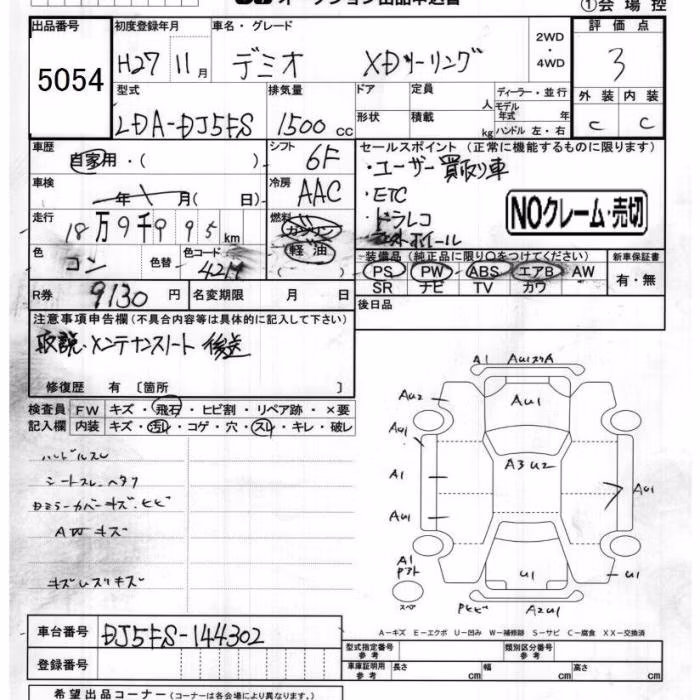 ①会場控
出品番号 初度登録年月 車名・グレード 2WD・4WD 評価点
5054 H27 11月 デミオ XDツーリング 3
型式 排気量 ドア 定員 人 ディーラー・並行
形状 積載 kg モデル年式 年 ハンドル 左・右
外装 内装
LDA-DJ5FS 1500cc C C
車歴 自家用・( ) シフト 6F
セールスポイント (正常に機能するものに限ります)
・ユーザー買取り車
・ETC
・ドラレコ
NOクレーム・売切
車検 年 月( 日) 冷房 AAC
走行 18万9千9 95km 燃料 ガソリン
軽油
色 コン 色替 色コード 42M ( )
装備品(純正品に限り○をつけてください) 新車保証書
PS PW ABS エアB AW 有・無
SR ナビ TV カワ
R券 9130円 名変期限 月 日
後日品
注意事項申告欄(不具合内容等は具体的に記入して下さい)
取説・メンテナンスノート 後送
修復歴 有 〔箇所 〕
検査員 FW キズ・飛石・ヒビ割・リペア跡・×要
記入欄 内装 キズ・汚レ・コゲ・穴・スレ・キレ・破レ
ハンドルスレ
シートスレ ヘタリ
Dミラーカバーキズヒビ
AWキズ
A1
AU2
AU1
AU1
A3 U2
A1
AU1
AU1
A1
U1
U1
スペア
A2U1
A-キズ E-エクボ U-凹み W-補修跡 S-サビ C-腐食 XX-交換済
車台番号 DJ5FS-144302
登録番号
型式指定番号 参考 類別区分番号 参考
車庫証明用 参考 長さ cm 幅 cm 高さ cm
希望出品コーナー(コーナーは各会場により異なります。)